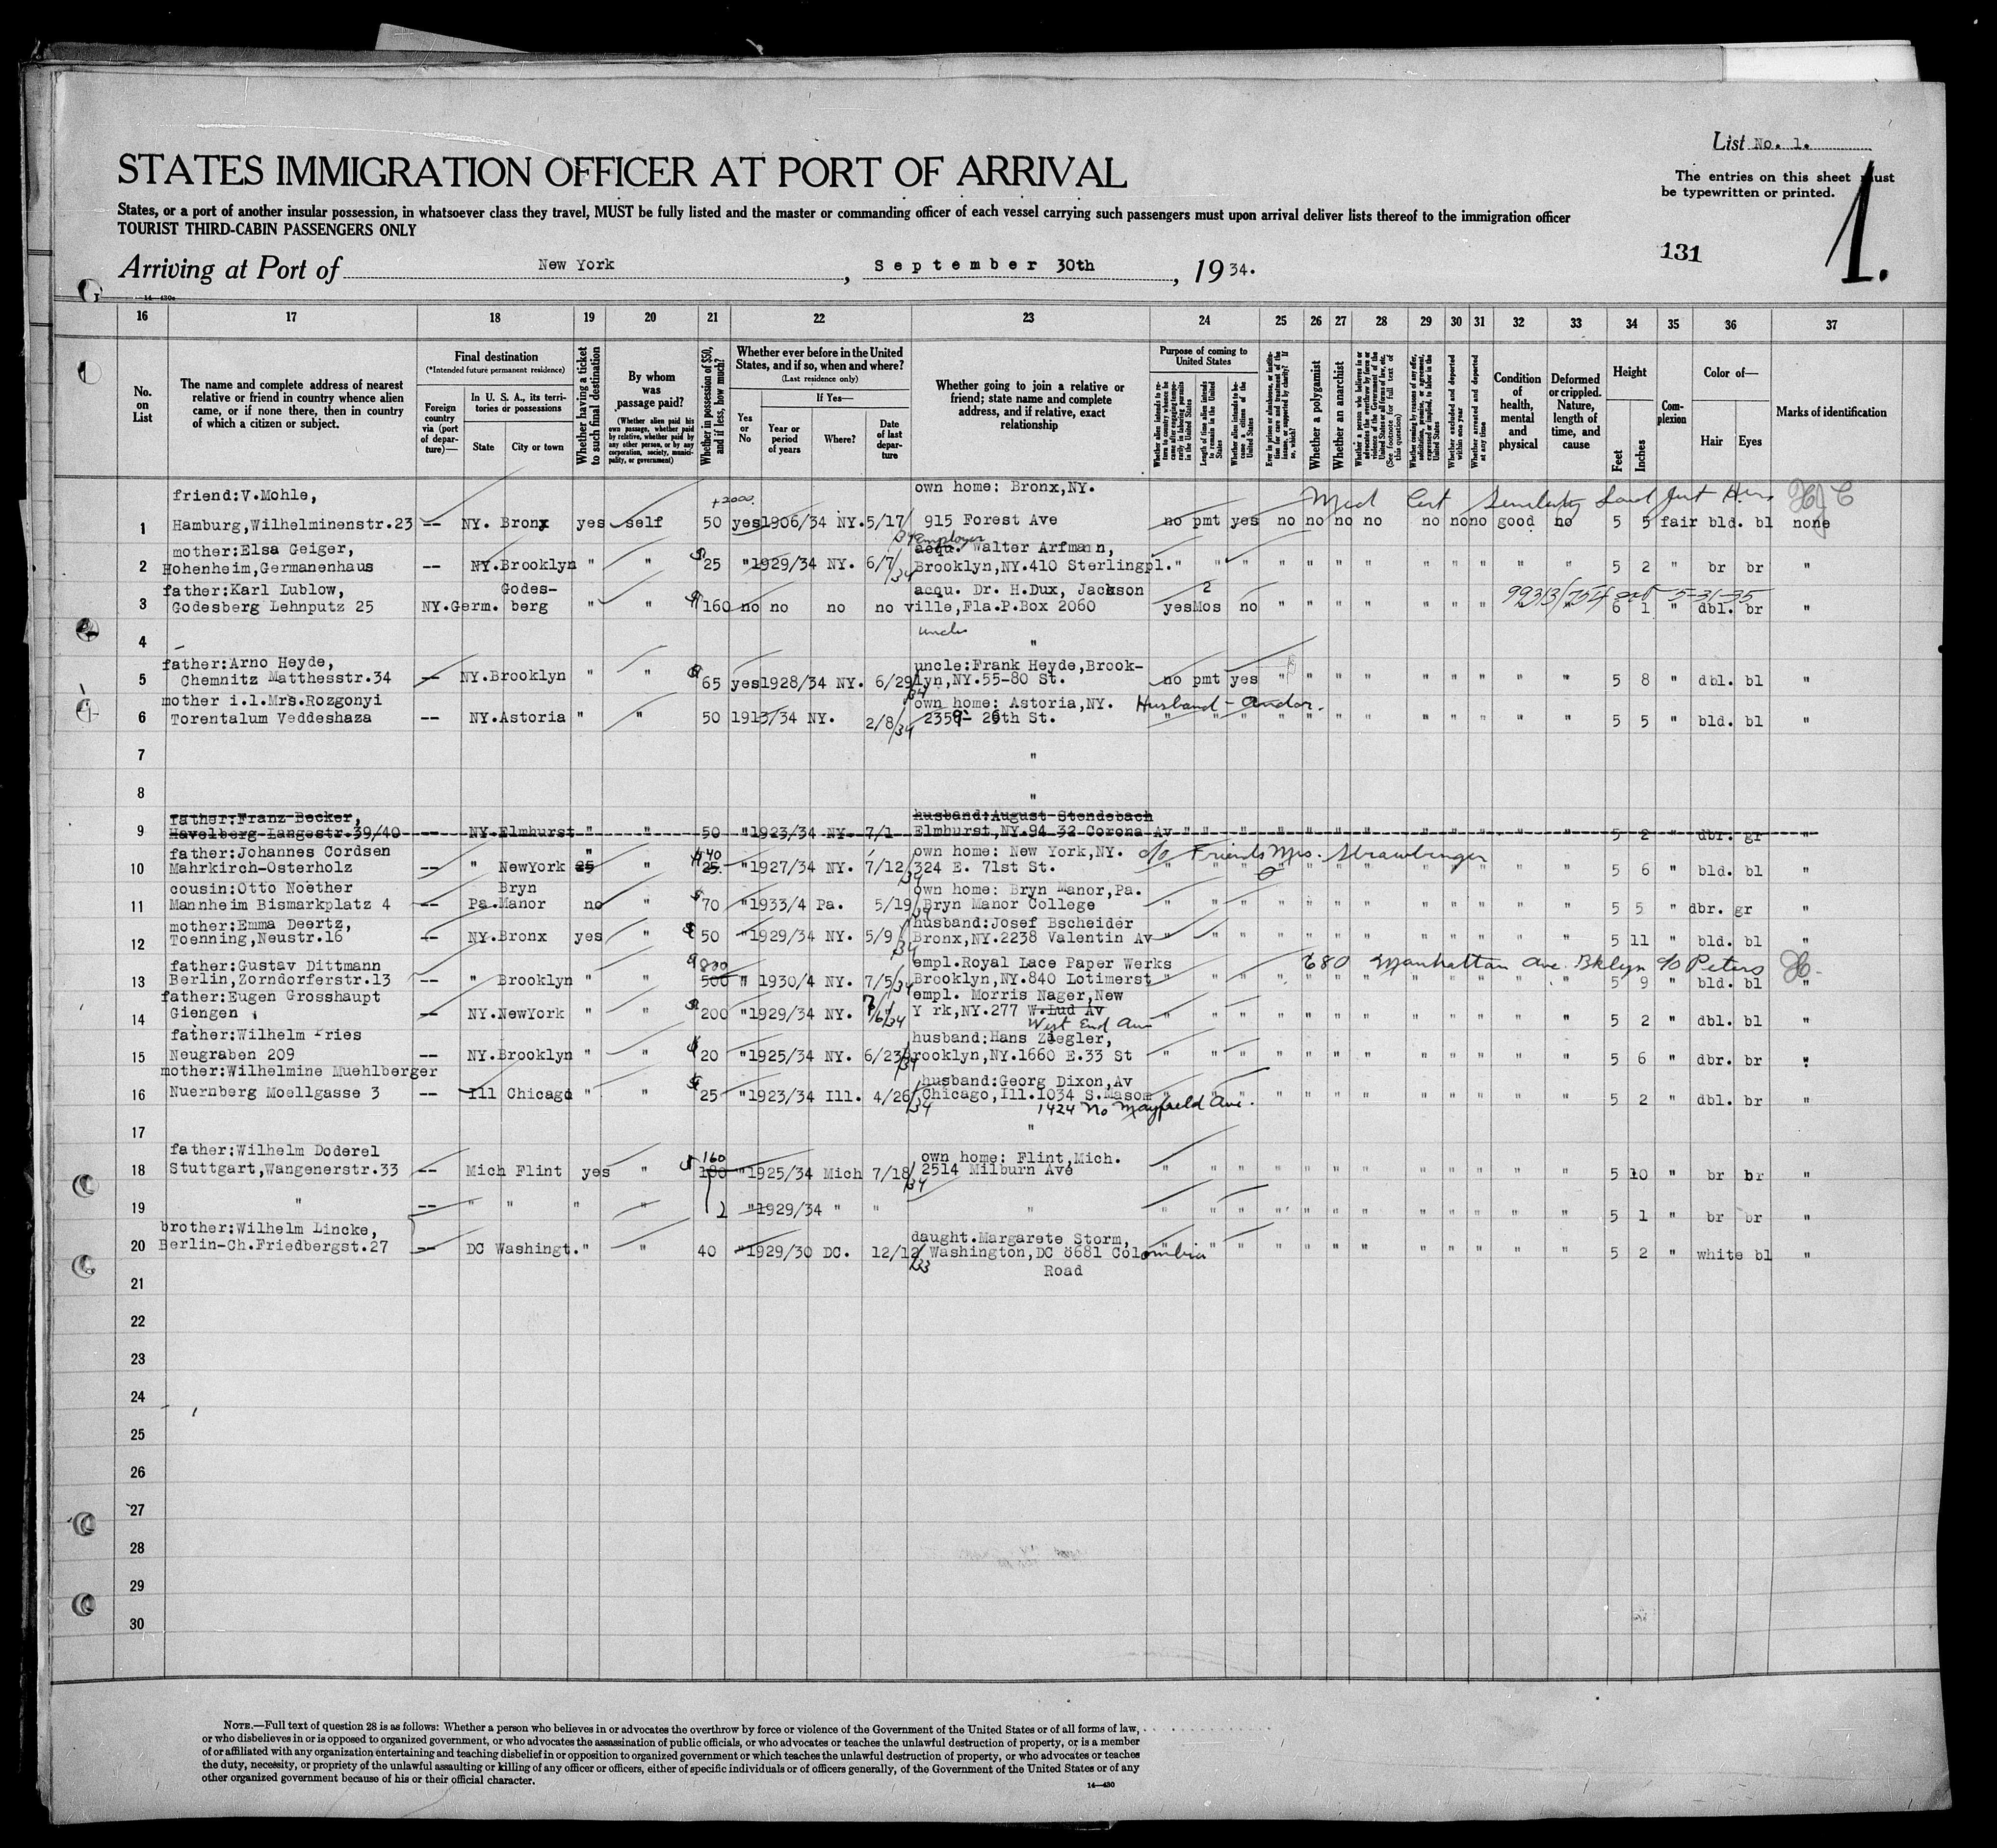 List No. 1.
STATES IMMIGRATION OFFICER AT PORT OF ARRIVAL
The entries on this sheet must
be typewritten or printed.
1.
States, or a port of another insular possession, in whatsoever class they travel, MUST be fully listed and the master or commanding officer of each vessel carrying such passengers must upon arrival deliver lists thereof to the immigration officer
TOURIST THIRD-CABIN PASSENGERS ONLY
131
Arriving at Port of New York, September 30th, 1934.
14—430c
16 17 18 19 20 21 22 23 24 25 26 27 28 29 30 31 32 33 34 35 36 37
No. on List
The name and complete address of nearest relative or friend in country whence alien came, or if none there, then in country of which a citizen or subject.
Final destination
(*Intended future permanent residence)
Foreign country via (port of departure)—
In U. S. A., its territories or possessions
State City or town
Whether having a ticket to such final destination
By whom was passage paid?
(Whether alien paid his own passage, whether paid by relative, whether paid by any other person, or by any corporation, society, municipality, or government)
Whether in possession of $50, and if less, how much?
Whether ever before in the United States, and if so, when and where?
(Last residence only)
Yes or No
If Yes—
Year or period of years Where? Date of last departure
Whether going to join a relative or friend; state name and complete address, and if relative, exact relationship
Purpose of coming to United States
Length of time alien intends to remain in the United States
Whether alien intends to become a citizen of the United States
Whether a polygamist
Whether an anarchist
Whether excluded and deported within one year
Whether arrested and deported at any time
Condition of health, mental and physical
Deformed or crippled. Nature, length of time, and cause
Height
Feet Inches
Complexion
Color of—
Hair Eyes
Marks of identification
friend:V.Mohle, +2000 own home: Bronx,NY. Med Cert
1 Hamburg,Wilhelminenstr.23 -- NY. Bronx yes self 50 yes 1906/34 NY. 5/17/34 915 Forest Ave no pmt yes no no no no no no no good no 5 5 fair bld. bl none
mother:Elsa Geiger, employer acqu. Walter Arfmann,
2 Hohenheim,Germanenhaus -- NY.Brooklyn " " $25 "1929/34 NY. 6/7/34 Brooklyn,NY.410 Sterlingpl. " " " " " " " " " " " " 5 2 " br br "
father:Karl Lublow, Godes- acqu. Dr. H.Dux, Jackson 2
3 Godesberg Lehnputz 25 NY.Germ. berg " " $160 no no no no ville,Fla.P.Box 2060 yes Mos no " " " " " " " 99313/754 5-31-35 6 1 " dbl. br "
uncle
4 "
father:Arno Heyde, uncle:Frank Heyde,Brook-
5 Chemnitz Matthesstr.34 -- NY.Brooklyn " " $65 yes 1928/34 NY. 6/29/34 lyn,NY.55-80 St. no pmt yes " " " " " " " " " 5 8 " dbl. bl "
mother i.l.Mrs.Rozgonyi own home: Astoria,NY. Husband - Andor.
6 Torentalum Veddeshaza -- NY.Astoria " " 50 1913/34 NY. 2/8/34 2359- 26th St. " " " " " " " " " " " " 5 5 " bld. bl "
7 "
8 "
father:Franz Becker, husband:August Stendebach
9 Havelberg Langestr.39/40 -- NY.Elmhurst " " 50 "1923/34 NY. 7/1 Elmhurst,NY.94 32 Corona Av " " " " " " " " " " " 5 2 " dbr. gr "
father:Johannes Cordsen " $40 own home: New York,NY. c/o Friends Mrs. Strawbinger
10 Mahrkirch-Osterholz -- " NewYork 25 " 25. "1927/34 NY. 7/12/34 324 E. 71st St. " " " " " " " " " " " " 5 6 " bld. bl "
cousin:Otto Noether Bryn own home: Bryn Manor,Pa.
11 Mannheim Bismarkplatz 4 -- Pa.Manor no " $70 "1933/4 Pa. 5/19/34 Bryn Manor College " " " " " " " " " " " " 5 5 " dbr. gr "
mother:Emma Deertz, husband:Josef Bscheider
12 Toenning,Neustr.16 -- NY.Bronx yes " $50 "1929/34 NY. 5/9/34 Bronx,NY.2238 Valentin Av " " " " " " " " " " " 5 11 " bld. bl "
father:Gustav Dittmann $800 empl.Royal Lace Paper Werks 680 Manhattan Ave. Bklyn c/o Peters
13 Berlin,Zorndorferstr.13 -- " Brooklyn " " 500 " 1930/4 NY. 7/5/34 Brooklyn,NY.840 Lotimerst " " " " " " " " " " " 5 9 " bld. bl "
father:Eugen Grosshaupt empl. Morris Nager,New
14 Giengen -- NY.NewYork " " $200 "1929/34 NY. 7/6/34 Y rk,NY.277 W.Lud Av " " " " " " " " " " " " 5 2 " dbl. bl "
West End Ave
father:Wilhelm Fries husband:Hans Ziegler,
15 Neugraben 209 -- NY.Brooklyn " " $20 "1925/34 NY. 6/23/34 rooklyn,NY.1660 E.33 St " " " " " " " " " " " " 5 6 " dbr. br "
mother:Wilhelmine Muehlberger husband:Georg Dixon,Av
16 Nuernberg Moellgasse 3 -- Ill Chicago " " $25 "1923/34 Ill. 4/26/34 Chicago,Ill.1034 S.Mason " " " " " " " " " " " " 5 2 " dbl. br "
1424 No Mayfield Ave.
17 "
father:Wilhelm Doderel 160 own home: Flint,Mich.
18 Stuttgart,Wangenerstr.33 -- Mich Flint yes " $180 "1925/34 Mich 7/18/34 2514 Milburn Ave " " " " " " " " " " " " 5 10 " br br "
19 " -- " " " " "1929/34 " " " " " " " " " " " " " " " " 5 1 " br br "
brother:Wilhelm Lincke, daught.Margarete Storm,
20 Berlin-Ch.Friedbergst.27 -- DC Washingt. " " 40 "1929/30 DC. 12/12/33 Washington,DC 8681 Colombia " " " " " " " " " " " 5 2 " white bl "
Road
21
22
23
24
25
26
27
28
29
30
NOTE.—Full text of question 28 is as follows: Whether a person who believes in or advocates the overthrow by force or violence of the Government of the United States or of all forms of law,
or who disbelieves in or is opposed to organized government, or who advocates the assassination of public officials, or who advocates or teaches the unlawful destruction of property, or is a member
of or affiliated with any organization entertaining and teaching disbelief in or opposition to organized government or which teaches the unlawful destruction of property, or who advocates or teaches
the duty, necessity, or propriety of the unlawful assaulting or killing of any officer or officers, either of specific individuals or of officers generally, of the Government of the United States or of any
other organized government because of his or their official character.
14—430